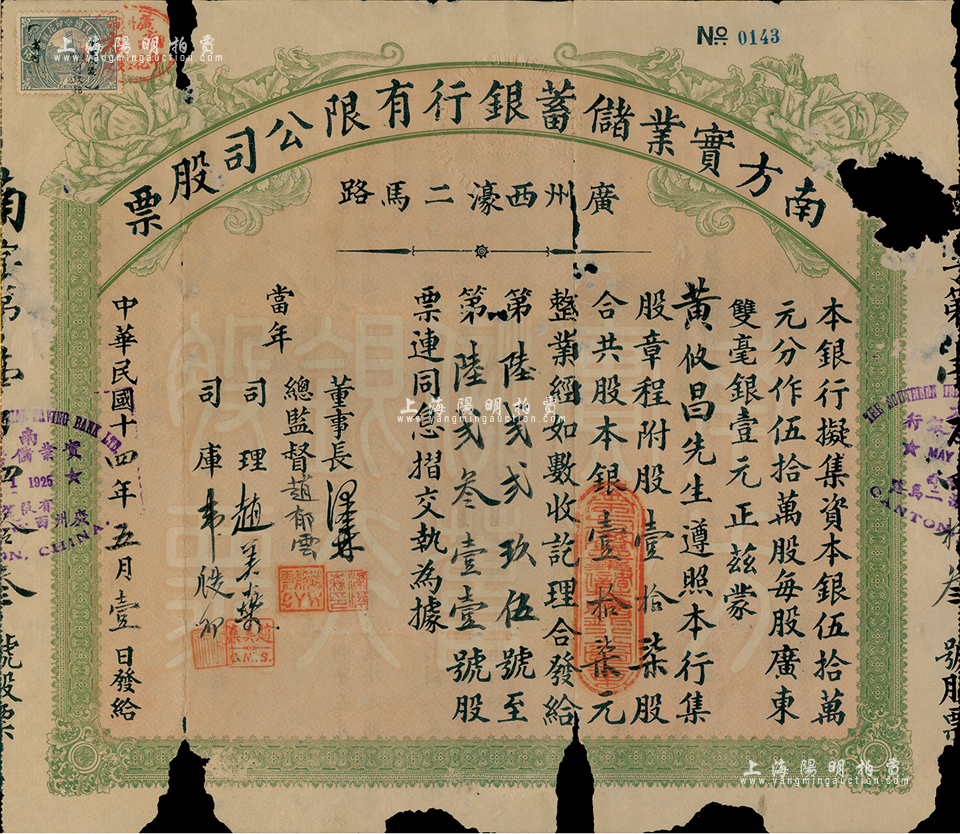 No. 0143
南方實業儲蓄銀行有限公司股票
廣州西濠二馬路
本銀行擬集資本銀伍拾萬
元分作伍拾萬股每股廣東
雙毫銀壹元正茲蒙
黃攸昌先生遵照本行集
股章程附股壹拾柒股
合共股本銀壹拾柒元
整業經如數收訖理合發給
第陸弍弍玖伍號至
第陸弍叁壹壹號股
票連同息摺交執為據
當年
董事長
總監督趙郁雲
司理趙美榮
司庫
中華民國十四年五月壹日發給
號股票
號股票
SAVING BANK LTD.
1925
CHINA.
THE SOUTHERN
MAY
CANTON
上海陽明拍賣
www.yangmingauction.com
上海陽明拍賣
www.yangmingauction.com
上海陽明拍賣
www.yangmingauction.com